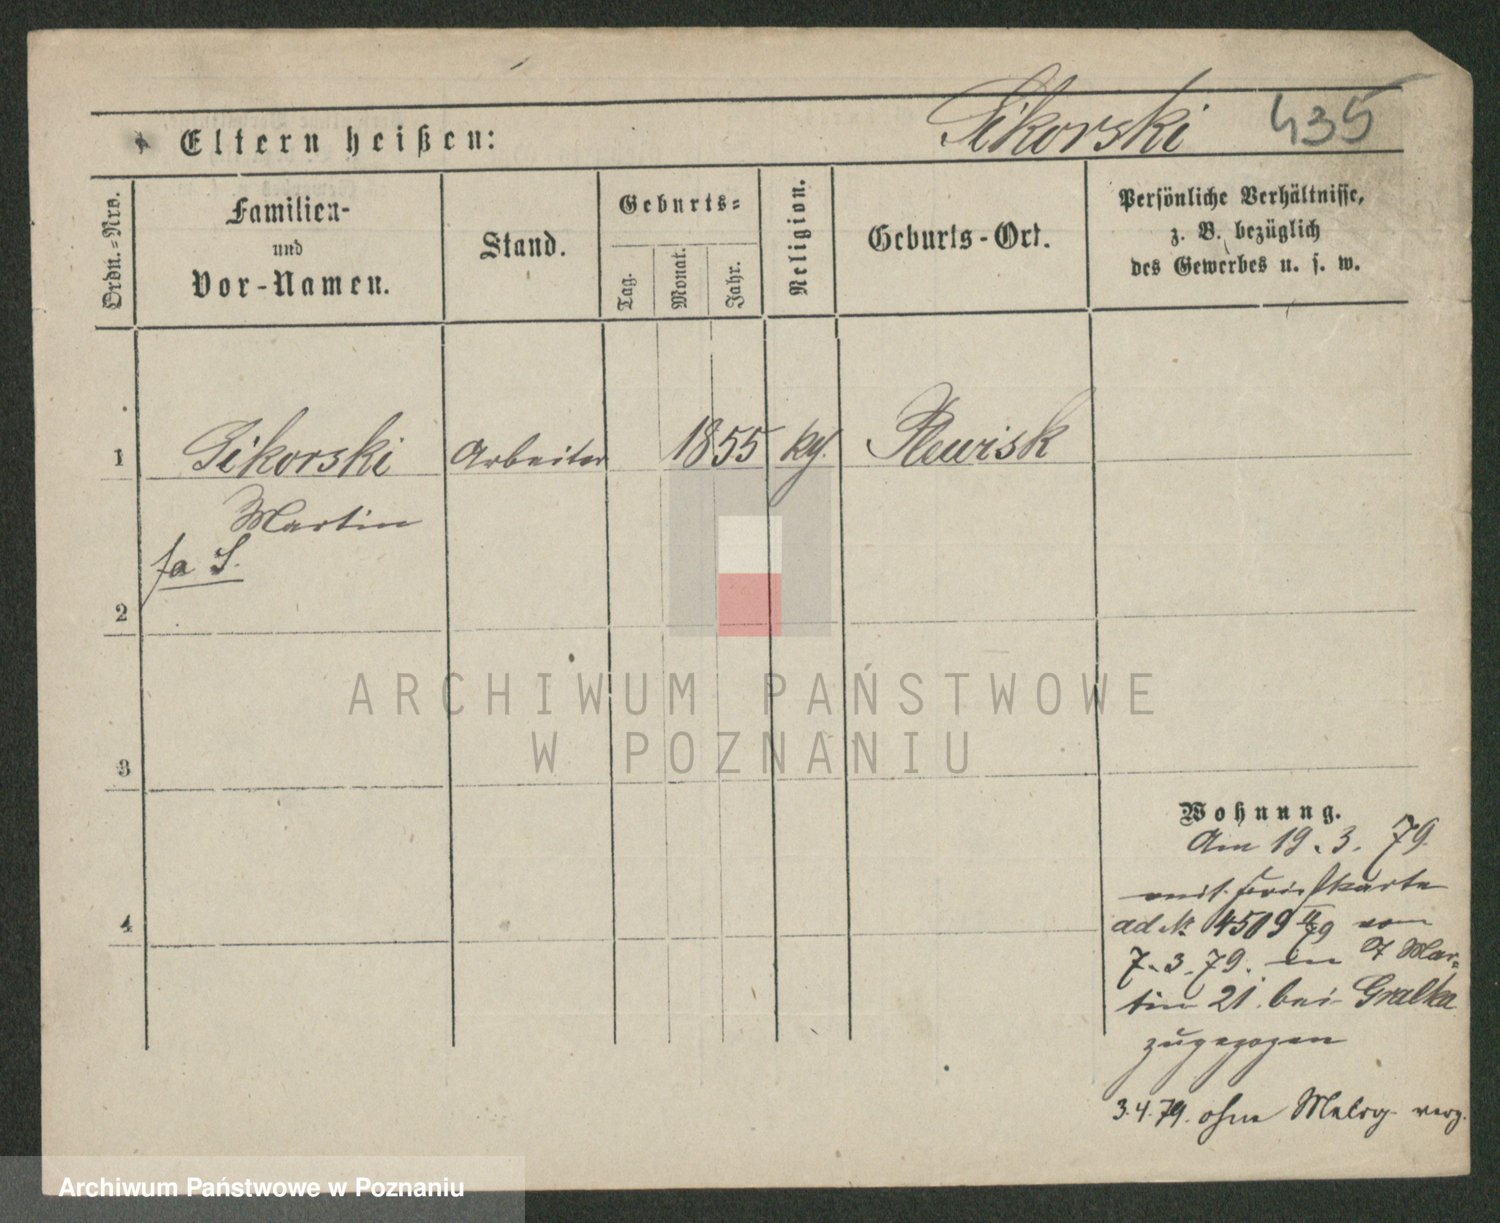 Sikorski 435
Eltern heißen:
Ordn.-Nro.
Familien-
und
Vor-Namen.
Stand.
Geburts-
Tag.
Monat.
Jahr.
Religion.
Geburts-Ort.
Persönliche Verhältnisse,
z. B. bezüglich
des Gewerbes u. s. w.
1 Sikorski Arbeiter 1855 kg. Plewisk
Martin
fa S.
2
ARCHIWUM PAŃSTWOWE
W POZNANIU
3
Wohnung.
Am 19.3.79
mit
ad № 4509 79 von
7.3.79. in St Mar=
tin 21. bei Gralka
zugezogen
4
3.4.79. ohne Meldg. verz.
Archiwum Państwowe w Poznaniu